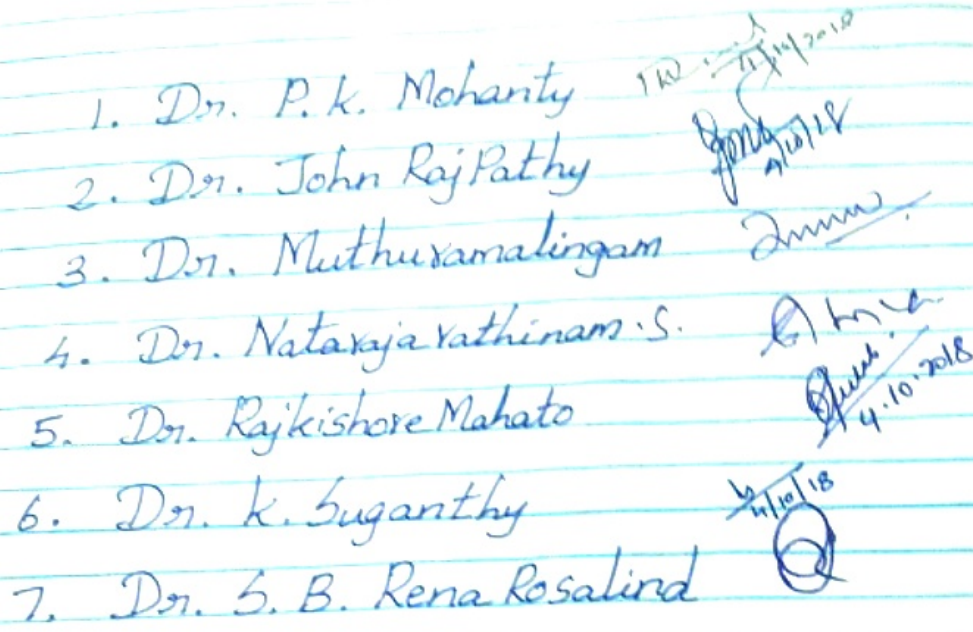 1. Dr. P. K. Mohanty 4/10/2018
2. Dr. John RajPathy 4/10/18
3. Dr. Muthuramalingam
4. Dr. Nataraja rathinam. S.
5. Dr. Rajkishore Mahato 4.10.2018
6. Dr. K. Suganthy 4/10/18
7. Dr. S. B. Rena Rosalind